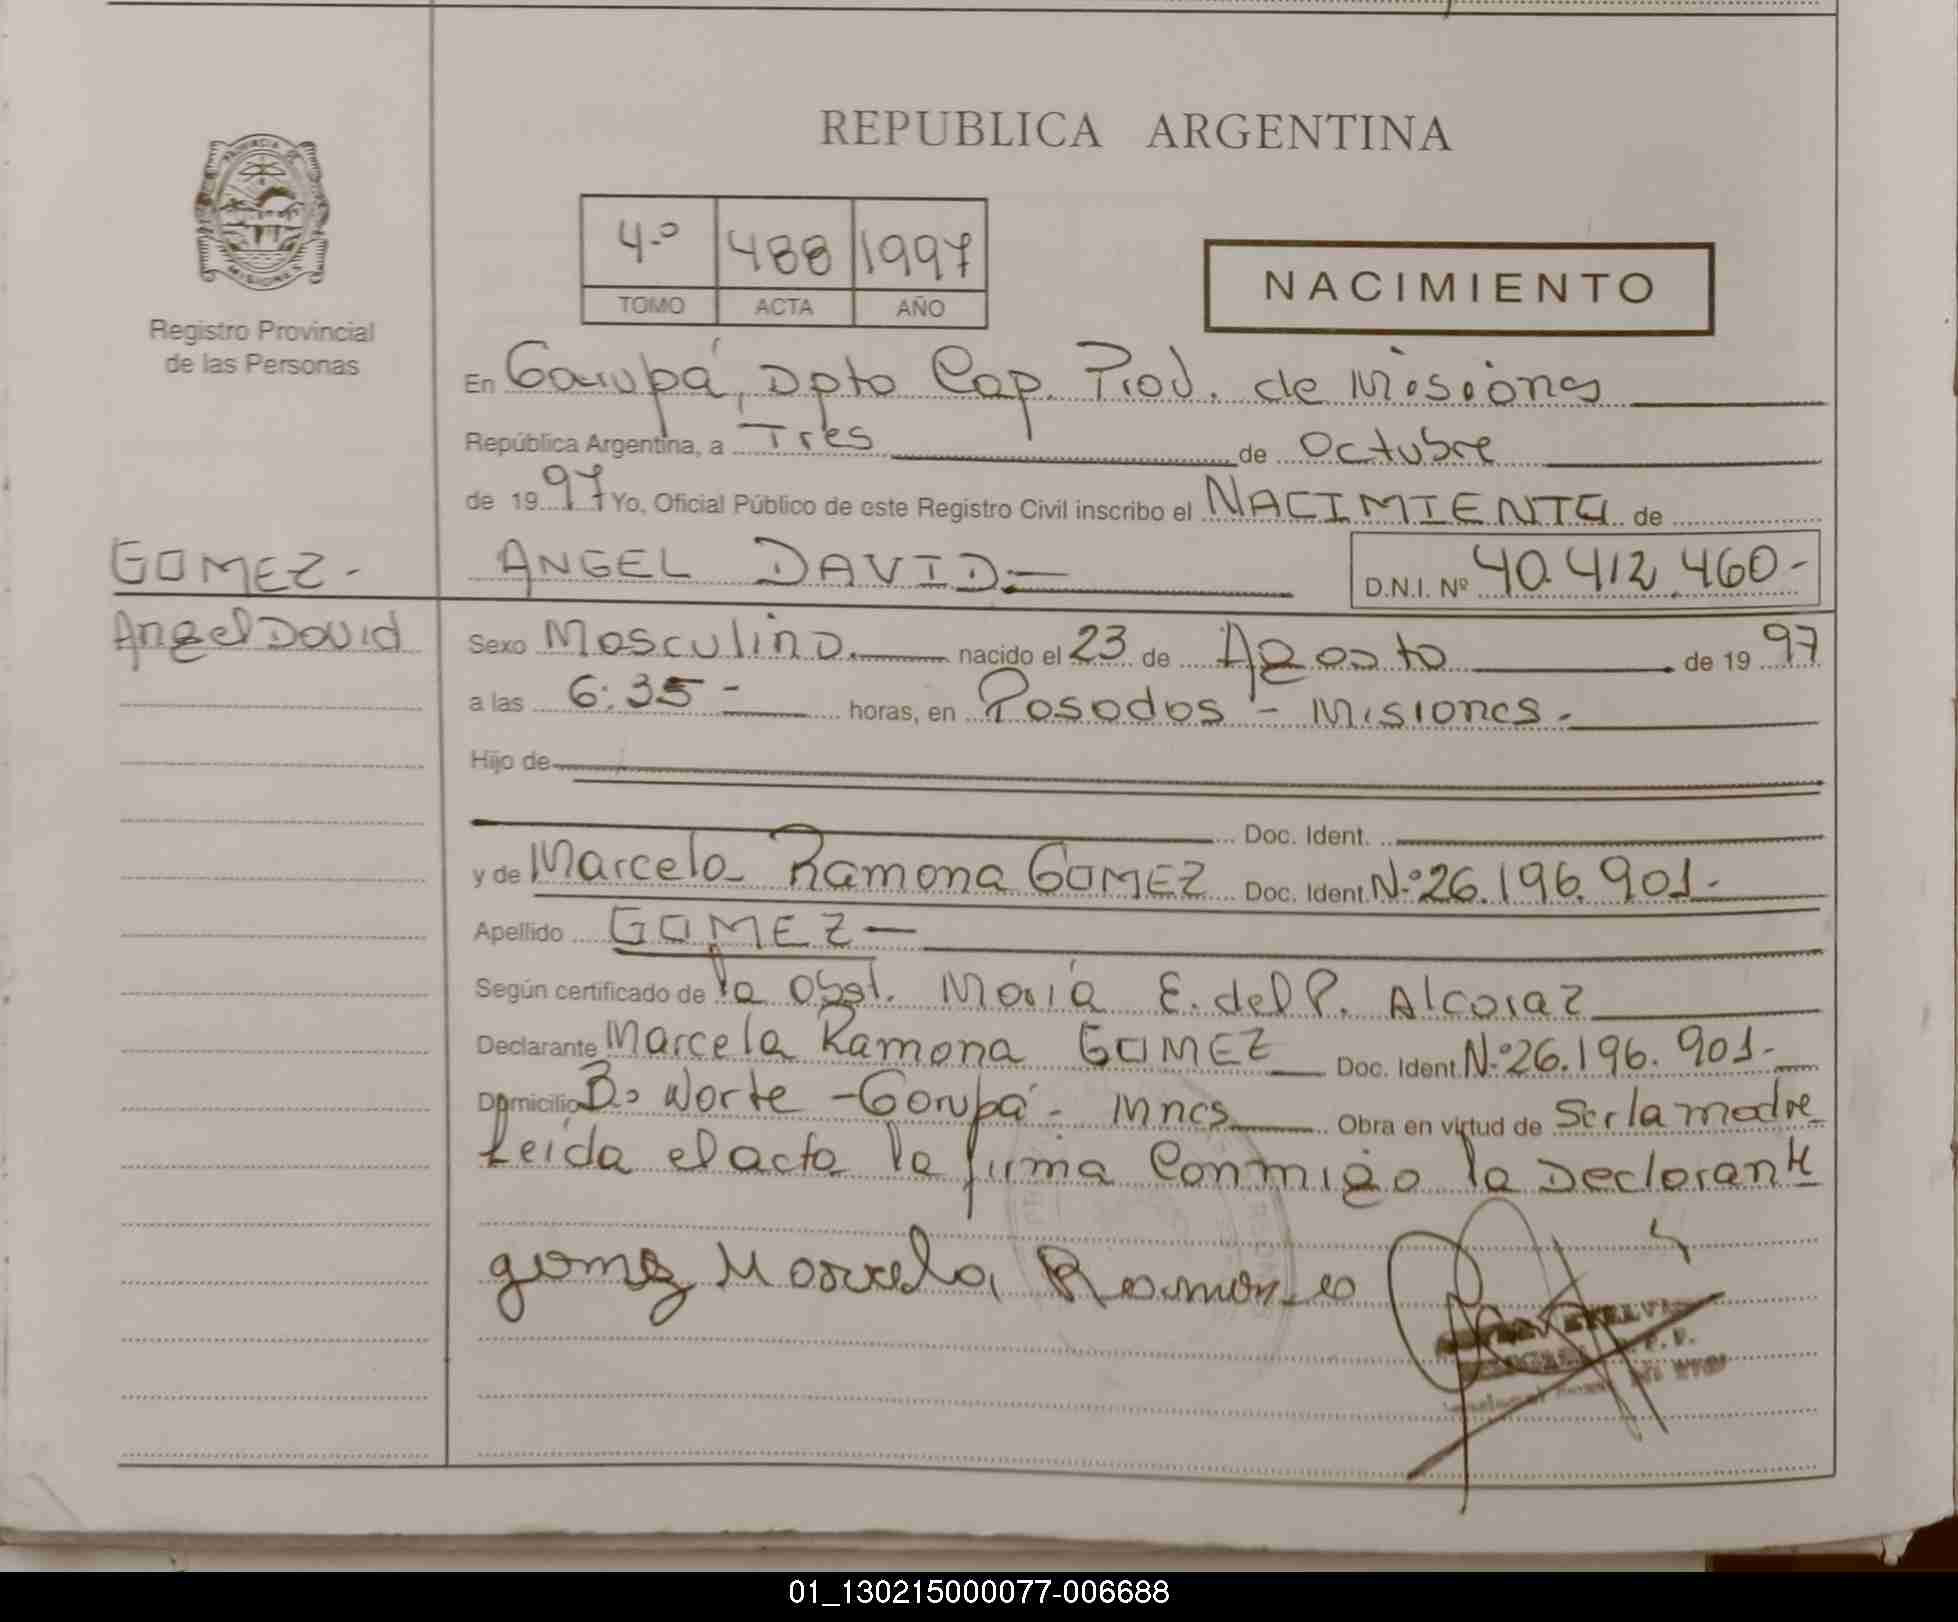 REPUBLICA ARGENTINA
PROVINCIA DE
MISIONES
Registro Provincial
de las Personas
4.º 488 1997
TOMO ACTA AÑO
NACIMIENTO
En Garupá, Dpto Cap. Prov. de Misiones
República Argentina, a Tres de Octubre
de 1997 Yo, Oficial Público de este Registro Civil inscribo el NACIMIENTO de
GOMEZ.- ANGEL DAVID.- D.N.I. Nº 40.412.460-
Angel David
Sexo Masculino. nacido el 23 de Agosto de 1997
a las 6:35- horas, en Posadas - Misiones.-
Hijo de
Doc. Ident.
y de Marcela Ramona GOMEZ Doc. Ident. N.º 26.196.901.-
Apellido GOMEZ-
Según certificado de la Obst. María E. del P. Alcaraz
Declarante Marcela Ramona GOMEZ Doc. Ident. N.º 26.196.901.-
Domicilio B.º Norte - Garupá - Mnes Obra en virtud de Ser la madre
Leída el acta la firma Conmigo la Declarante
gomez Marcela Ramona
01_130215000077-006688